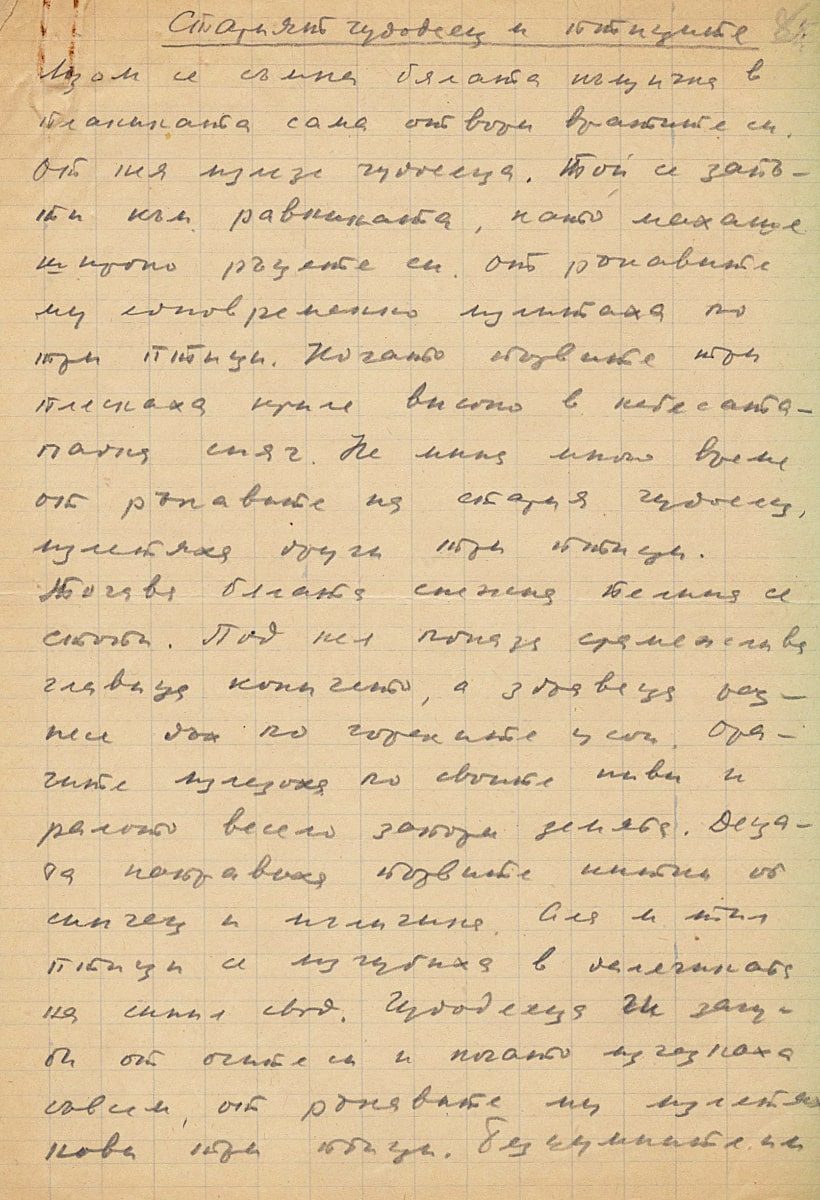 Старият чудодеец и птиците
Щом се съмна бялата къщичка в
планината сама отвори вратите си.
От нея излезе чудодееца. Той се запъ-
ти към равнината, като махаше
широко ръцете си. От ръкавите
му едновременно излитаха по
три птици. Когато първите три
плескаха криле високо в небесата-
падна сняг. Не мина много време
от ръкавите на стария чудодеец,
излетяха други три птици.
Тогава бялата снежна пелена се
стопи. Под нея показа срамежлива
главица кокичето, а здравеца раз-
несе дъх по горските усои. Ора-
чите излязоха по своите ниви и
ралото весело заора земята. Деца-
та направиха първите китки от
синчец и иглика. Ала и тия
птици се изгубиха в далечината
на синия свод. Чудодееца ги загу-
би от очите си и когато изчезнаха
съвсем, от ръкавите му излетяха
нови три птици.